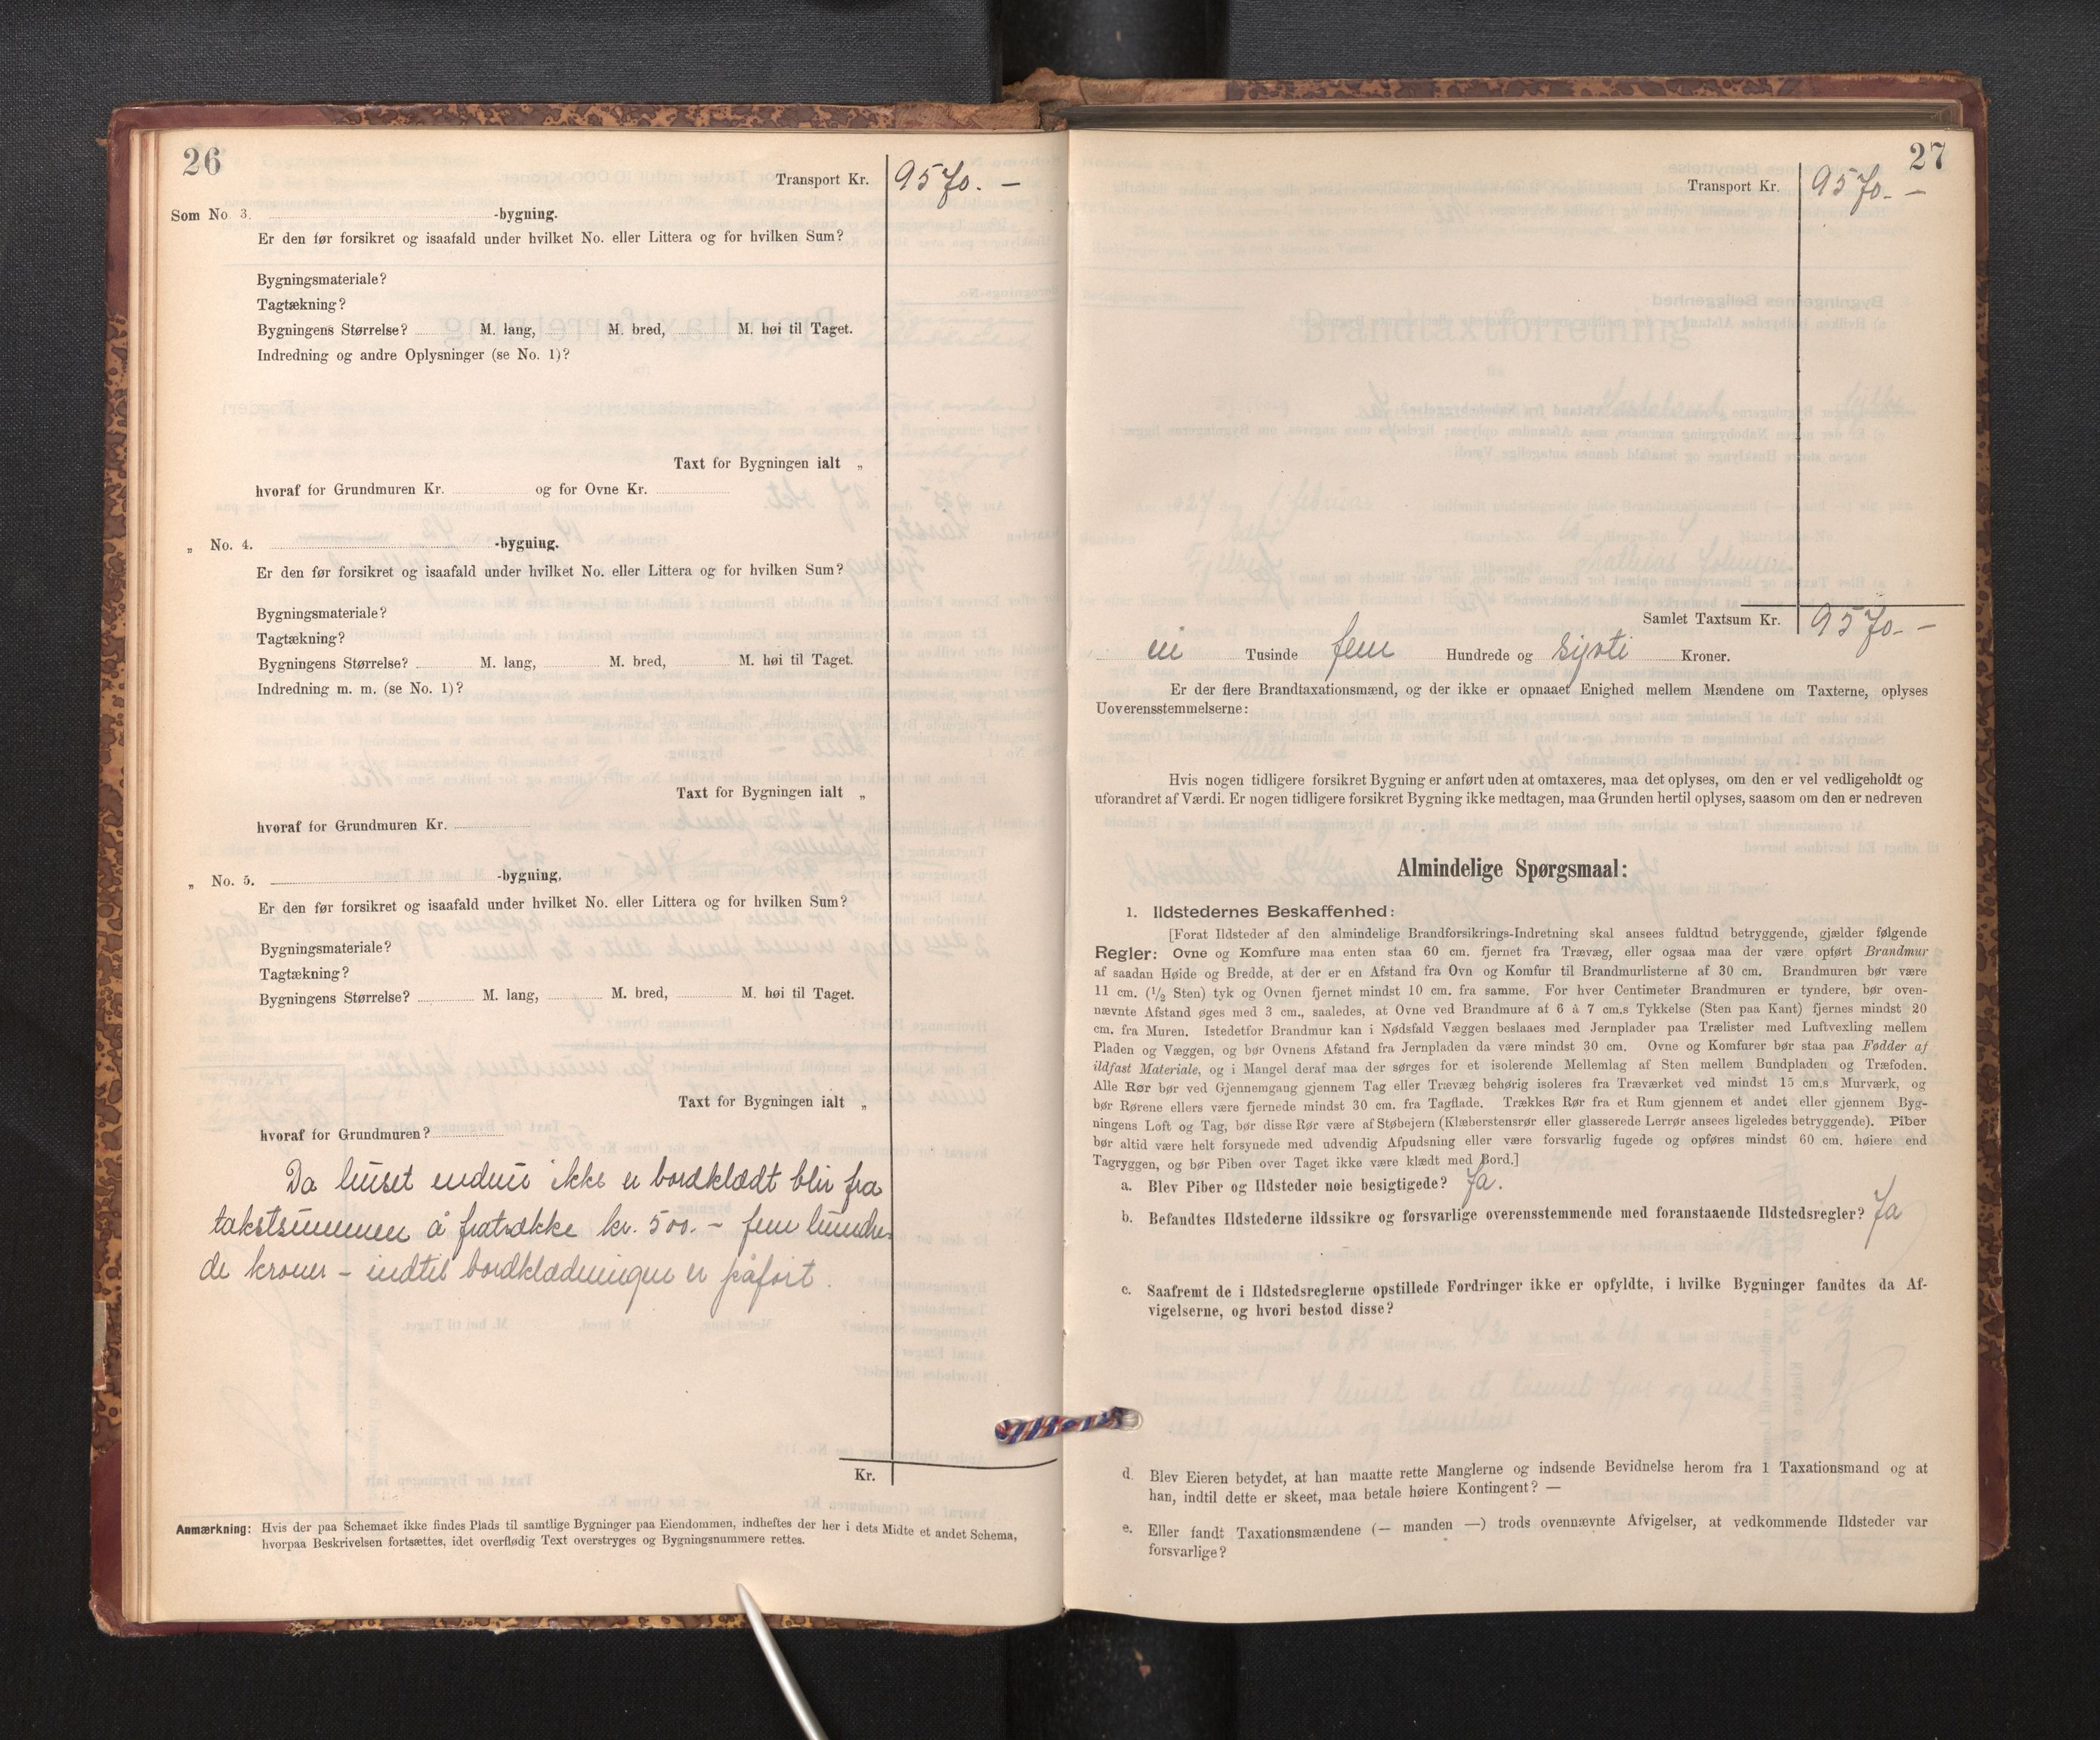 26
Transport Kr. 9570.-
Som No 3. -bygning.
Er den før forsikret og isaafald under hvilket No. eller Littera og for hvilken Sum?
Bygningsmateriale?
Tagtækning?
Bygningens Størrelse? M. lang, M. bred, M. høi til Taget.
Indredning og andre Oplysninger (se No. 1)?
Taxt for Bygningen ialt „
hvoraf for Grundmuren Kr. og for Ovne Kr.
„ No. 4. -bygning.
Er den før forsikret og isaafald under hvilket No. eller Littera og for hvilken Sum?
Bygningsmateriale?
Tagtækning?
Bygningens Størrelse? M. lang, M. bred, M. høi til Taget.
Indredning m. m. (se No. 1)?
Taxt for Bygningen ialt „
hvoraf for Grundmuren Kr.
„ No. 5. -bygning.
Er den før forsikret og isaafald under hvilket No. eller Littera og for hvilken Sum?
Bygningsmateriale?
Tagtækning?
Bygningens Størrelse? M. lang, M. bred, M. høi til Taget.
Taxt for Bygningen ialt „
hvoraf for Grundmuren?
Da huset endnu ikke er bordklædt blir fra
takstsummen å fratrække kr. 500.- fem hundre-
de kroner - indtil bordklædningen er påført.
Kr.
Anmærkning: Hvis der paa Schemaet ikke findes Plads til samtlige Bygninger paa Eiendommen, indheftes der her i dets Midte et andet Schema,
hvorpaa Beskrivelsen fortsættes, idet overflødig Text overstryges og Bygningsnummere rettes.
27
Transport Kr. 9570.-
Samlet Taxtsum Kr. 9570.-
ni Tusinde fem Hundrede og sytti Kroner.
Er der flere Brandtaxationsmænd, og der ikke er opnaaet Enighed mellem Mændene om Taxterne, oplyses
Uoverensstemmelserne:
Hvis nogen tidligere forsikret Bygning er anført uden at omtaxeres, maa det oplyses, om den er vel vedligeholdt og
uforandret af Værdi. Er nogen tidligere forsikret Bygning ikke medtagen, maa Grunden hertil oplyses, saasom om den er nedreven
Almindelige Spørgsmaal:
1. Ildstedernes Beskaffenhed:
[Forat Ildsteder af den almindelige Brandforsikrings-Indretning skal ansees fuldtud betryggende, gjælder følgende
Regler: Ovne og Komfure maa enten staa 60 cm. fjernet fra Trævæg, eller ogsaa maa der være opført Brandmur
af saadan Høide og Bredde, at der er en Afstand fra Ovn og Komfur til Brandmurlisterne af 30 cm. Brandmuren bør være
11 cm. (1/2 Sten) tyk og Ovnen fjernet mindst 10 cm. fra samme. For hver Centimeter Brandmuren er tyndere, bør oven-
nævnte Afstand øges med 3 cm., saaledes, at Ovne ved Brandmure af 6 à 7 cm.s Tykkelse (Sten paa Kant) fjernes mindst 20
cm. fra Muren. Istedetfor Brandmur kan i Nødsfald Væggen beslaaes med Jernplader paa Trælister med Luftvexling mellem
Pladen og Væggen, og bør Ovnens Afstand fra Jernpladen da være mindst 30 cm. Ovne og Komfurer bør staa paa Fødder af
ildfast Materiale, og i Mangel deraf maa der sørges for et isolerende Mellemlag af Sten mellem Bundpladen og Træfoden.
Alle Rør bør ved Gjennemgang gjennem Tag eller Trævæg behørig isoleres fra Træværket ved mindst 15 cm.s Murværk, og
bør Rørene ellers være fjernede mindst 30 cm. fra Tagflade. Trækkes Rør fra et Rum gjennem et andet eller gjennem Byg-
ningens Loft og Tag, bør disse Rør være af Støbejern (Klæberstensrør eller glasserede Lerrør ansees ligeledes betryggende). Piber
bør altid være helt forsynede med udvendig Afpudsning eller være forsvarlig fugede og opføres mindst 60 cm. høiere end
Tagryggen, og bør Piben over Taget ikke være klædt med Bord.]
a. Blev Piber og Ildsteder nøie besigtigede? Ja.
b. Befandtes Ildstederne ildssikre og forsvarlige overensstemmende med foranstaaende Ildstedsregler? Ja
c. Saafremt de i Ildstedsreglerne opstillede Fordringer ikke er opfyldte, i hvilke Bygninger fandtes da Af-
vigelserne, og hvori bestod disse?
d. Blev Eieren betydet, at han maatte rette Manglerne og indsende Bevidnelse herom fra 1 Taxationsmand og at
han, indtil dette er skeet, maa betale høiere Kontingent? —
e. Eller fandt Taxationsmændene (— manden —) trods ovennævnte Afvigelser, at vedkommende Ildsteder var
forsvarlige?